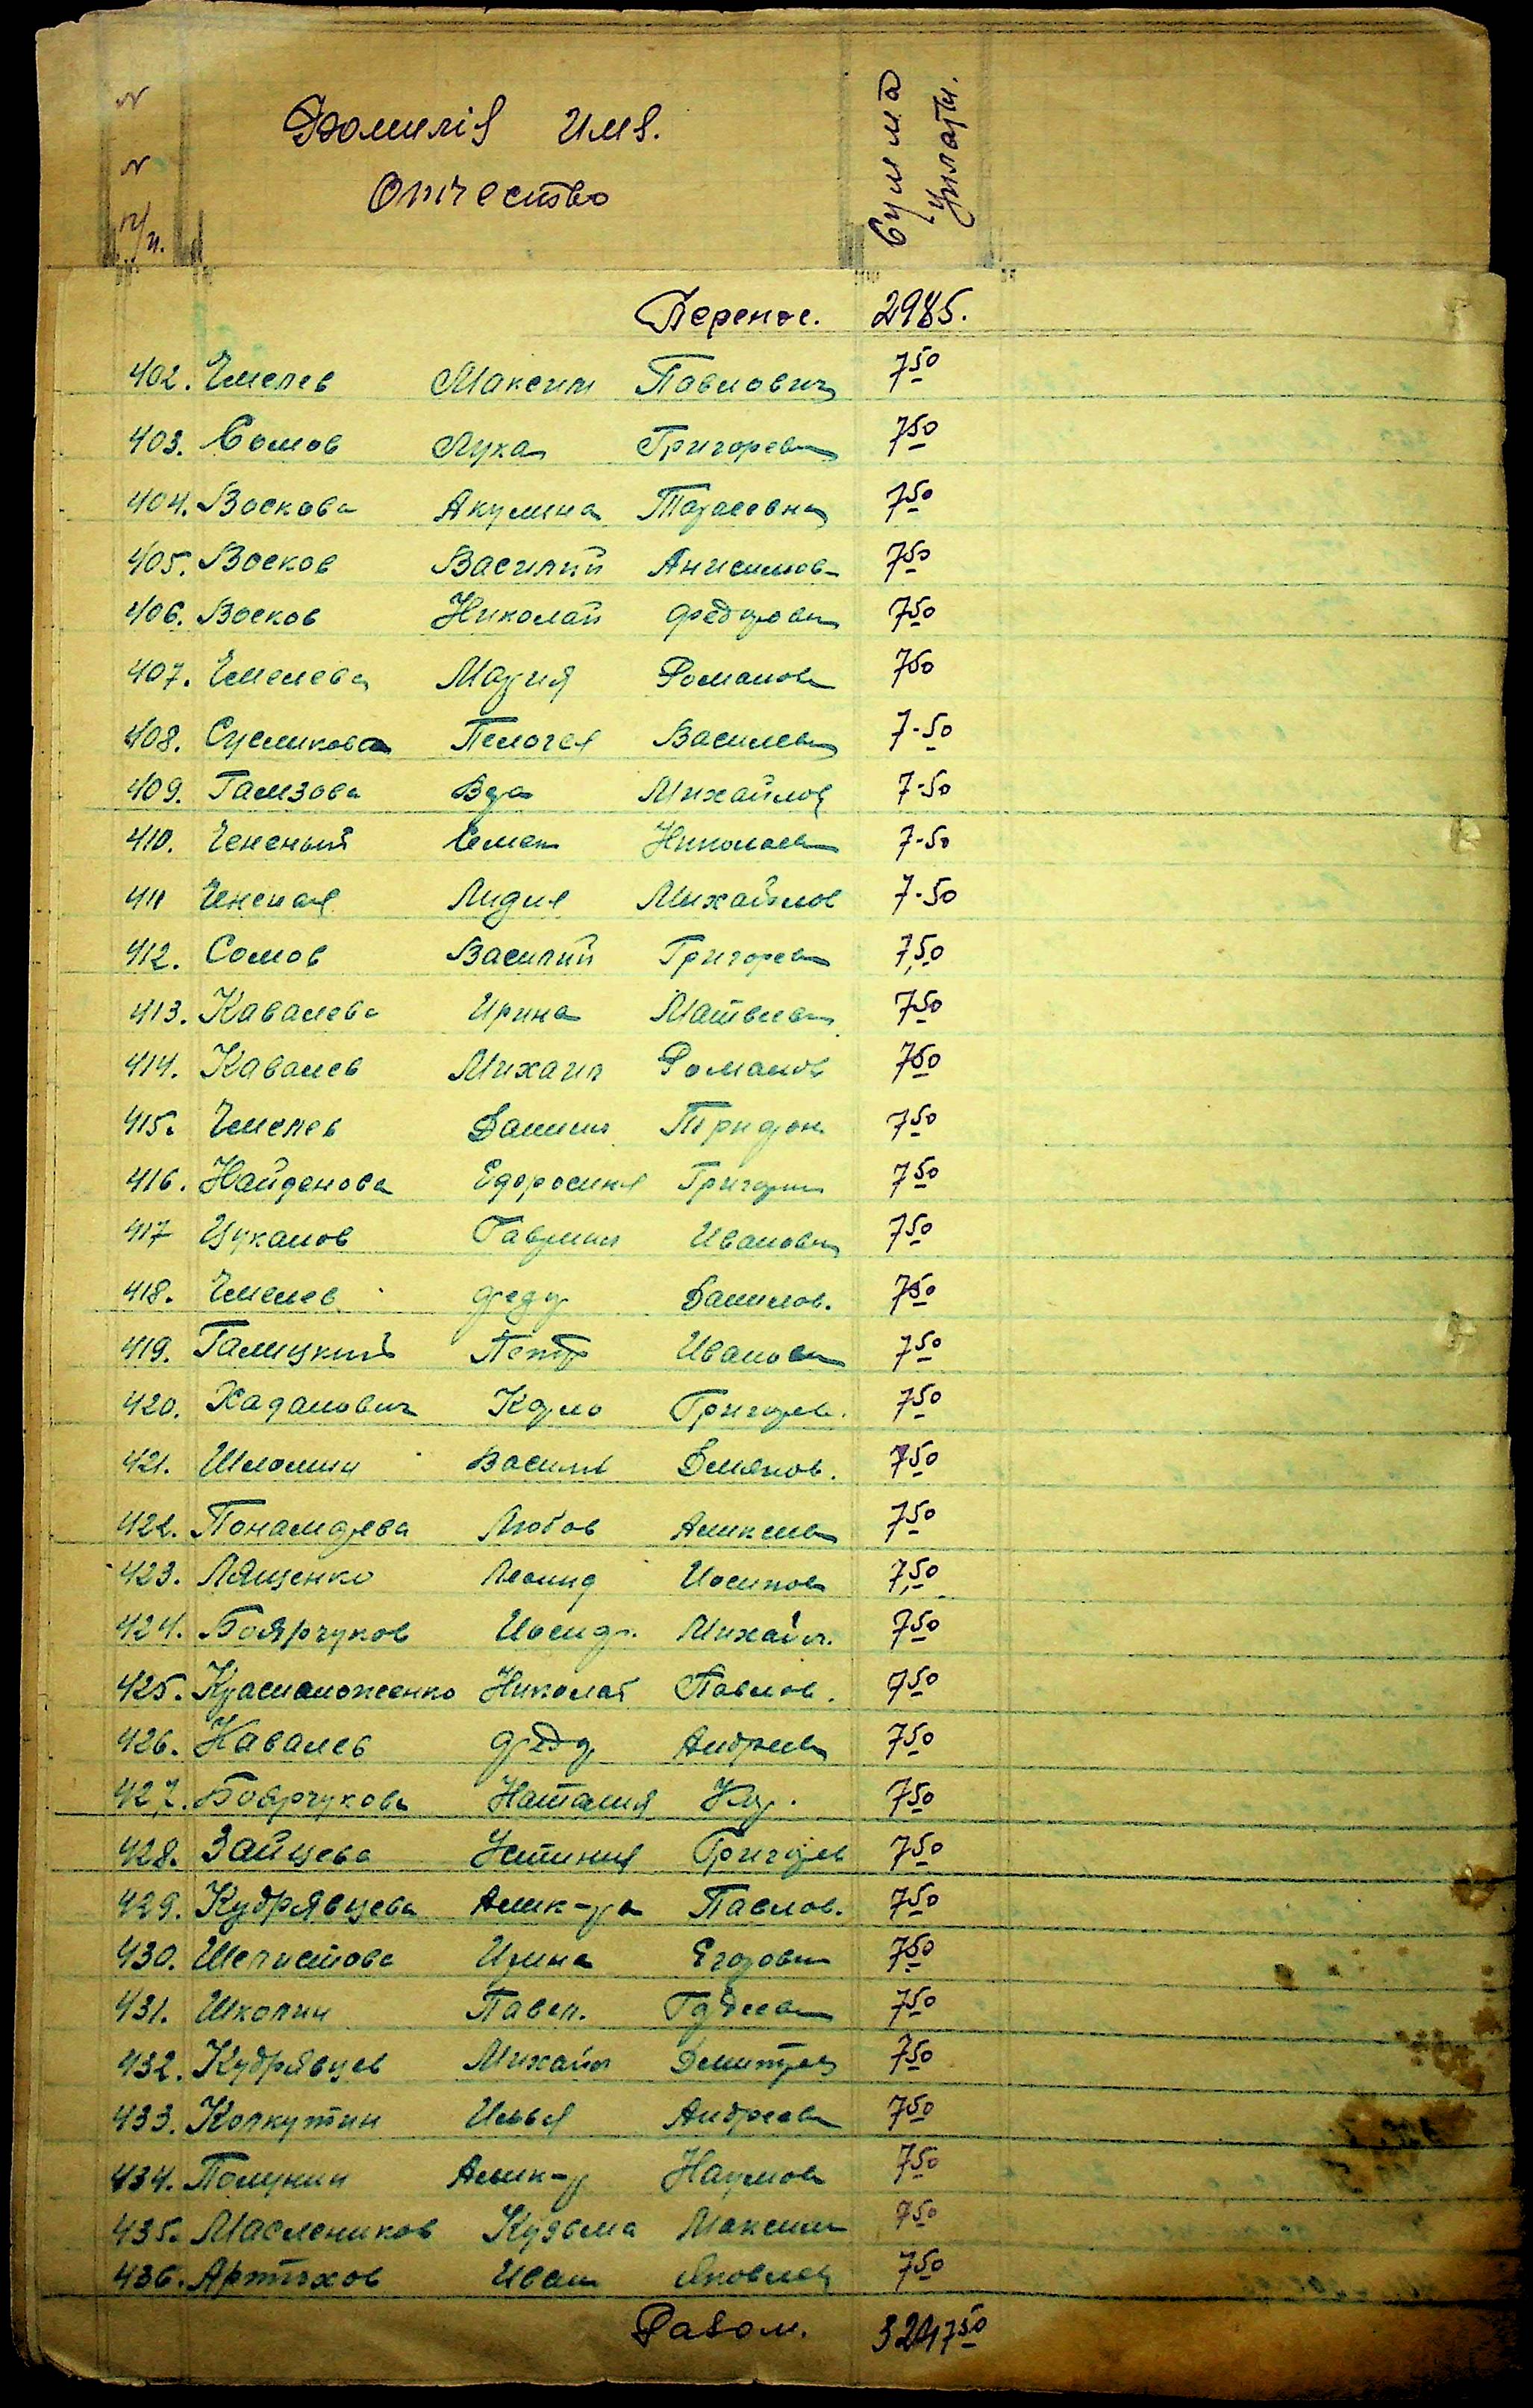 N N п/п. Фомилія Имя. Отчество Сумма уплати.
Перенос. 2985.
402. Чмелев Максим Павлович 7 50
403. Сомов Лука Григорев 7 50
404. Воскова Акулина Тарасовна 7 50
405. Восков Василий Анисимов 7 50
406. Восков Николай Федорович 7 50
407. Чмелева Мария Романов 7 50
408. Сусликова Пелогея Василев 7-50
409. Гамзова Вера Михайлов 7-50
410. Семен Николаев 7-50
411 Лидия Михайлов 7-50
412. Сомов Василий Григорев 7,50
413. Кавалева Ирина Матвеев 7 50
414. Кавалев Михаил Романов 7 50
415. Чмелев Данило 7 50
416. Найденова Ефросиния Григори 7 50
417 Цуканов Гаврил Иванович 7 50
418. Чмелев Федор Данилов. 7 50
419. Галицкий Петр Иванович 7 50
420. Хаданович Карло Григорев. 7 50
421. Шломин Василь Демянов. 7 50
422. Понамарева Любов Алексеев 7 50
423. Лященко Леонид Иосипов 7,50
424. Боярчуков Михайл. 7 50
425. Красналоженко Николай Павлов. 7 50
426. Кавалев Федор Андреев 7 50
427. Боярчукова Наталия 7 50
428. Зайцева Устиния Григорев 7 50
429. Кудрявцева Алек-ра Павлов. 7 50
430. Шелистова Ирина Егорович 7 50
431. Школин Павел. Гордеев 7 50
432. Кудрявцев Михайл Дмитрев 7 50
433. Колкутин Илья Андреев 7 50
434. Полунин Алек-р Наумов 7 50
435. Маслеников Кузьма Максим 7 50
436. Артюхов Иван Яковлев 7 50
Разом. 3247 50